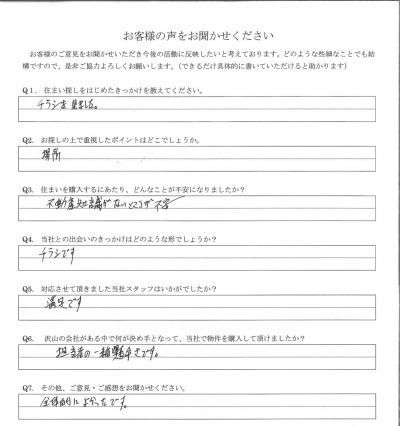 お客様の声をお聞かせください
お客様のご意見をお聞かせいただき今後の活動に反映したいと考えております。どのような些細なことでも結
構ですので、是非ご協力よろしくお願いします。（できるだけ具体的に書いていただけると助かります）
Q1. 住まい探しをはじめたきっかけを教えてください。
チラシを見ました。
Q2. お探しの上で重視したポイントはどこでしょうか。
場所
Q3. 住まいを購入するにあたり、どんなことが不安になりましたか？
不動産知識がないところが不安
Q4. 当社との出会いのきっかけはどのような形でしょうか？
チラシです
Q5. 対応させて頂きました当社スタッフはいかがでしたか？
満足です
Q6. 沢山の会社がある中で何が決め手となって、当社で物件を購入して頂けましたか？
担当者の一生懸命さです。
Q7. その他、ご意見・ご感想をお聞かせください。
全体的によかったです。